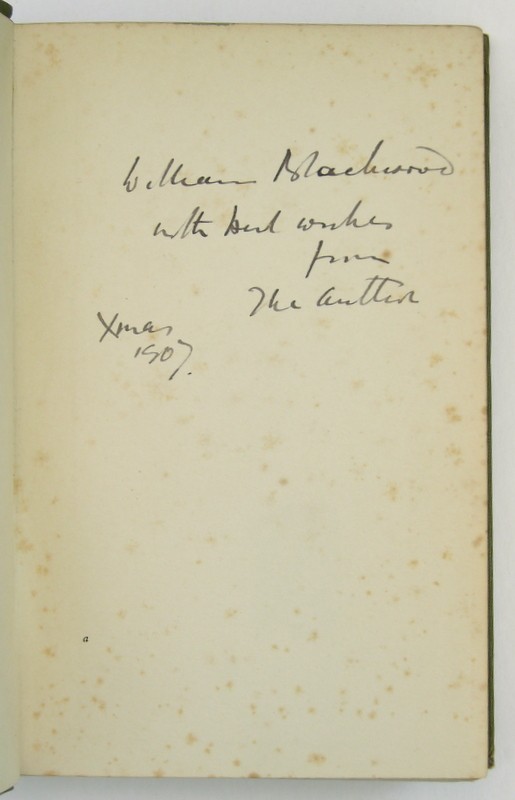 William Blackwood
with best wishes
from
The Author
Xmas
1907.
a